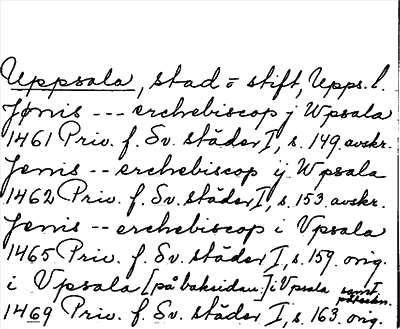 Uppsala, stad o stift, Upps. l.
Jønis --- erchebiscop j Wpsala
1461 Priv. f. Sv. städer I, s. 149. avskr.
Jenis -- erchebiscop ij Wpsala
1462 Priv. f. Sv. städer I, s. 153. avskr.
Jenis -- erchebiscop i Vpsala
1465 Priv. f. Sv. städer I, s. 159. orig.
i Vpsala [på baksidan:] i Vpsala samt. påteckn.
1469 Priv. f. Sv. städer I, s. 163. orig.